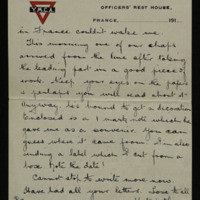 Y.M.C.A.
OFFICERS' REST HOUSE,
FRANCE, 191
in France couldn't wake me.
This morning one of our chaps
arrived from the line after taking
the leading part in a good piece of
work. Keep your eyes on the papers
& perhaps you will read about it
Anyway he's bound to get a decoration
Enclosed is a 1 mark note which he
gave me as a souvenir. You can
guess where it came from! I'm also
sending a label which I cut from a
. Note the date!
Cannot stop to write more now.
Have had all your letters. Love to all